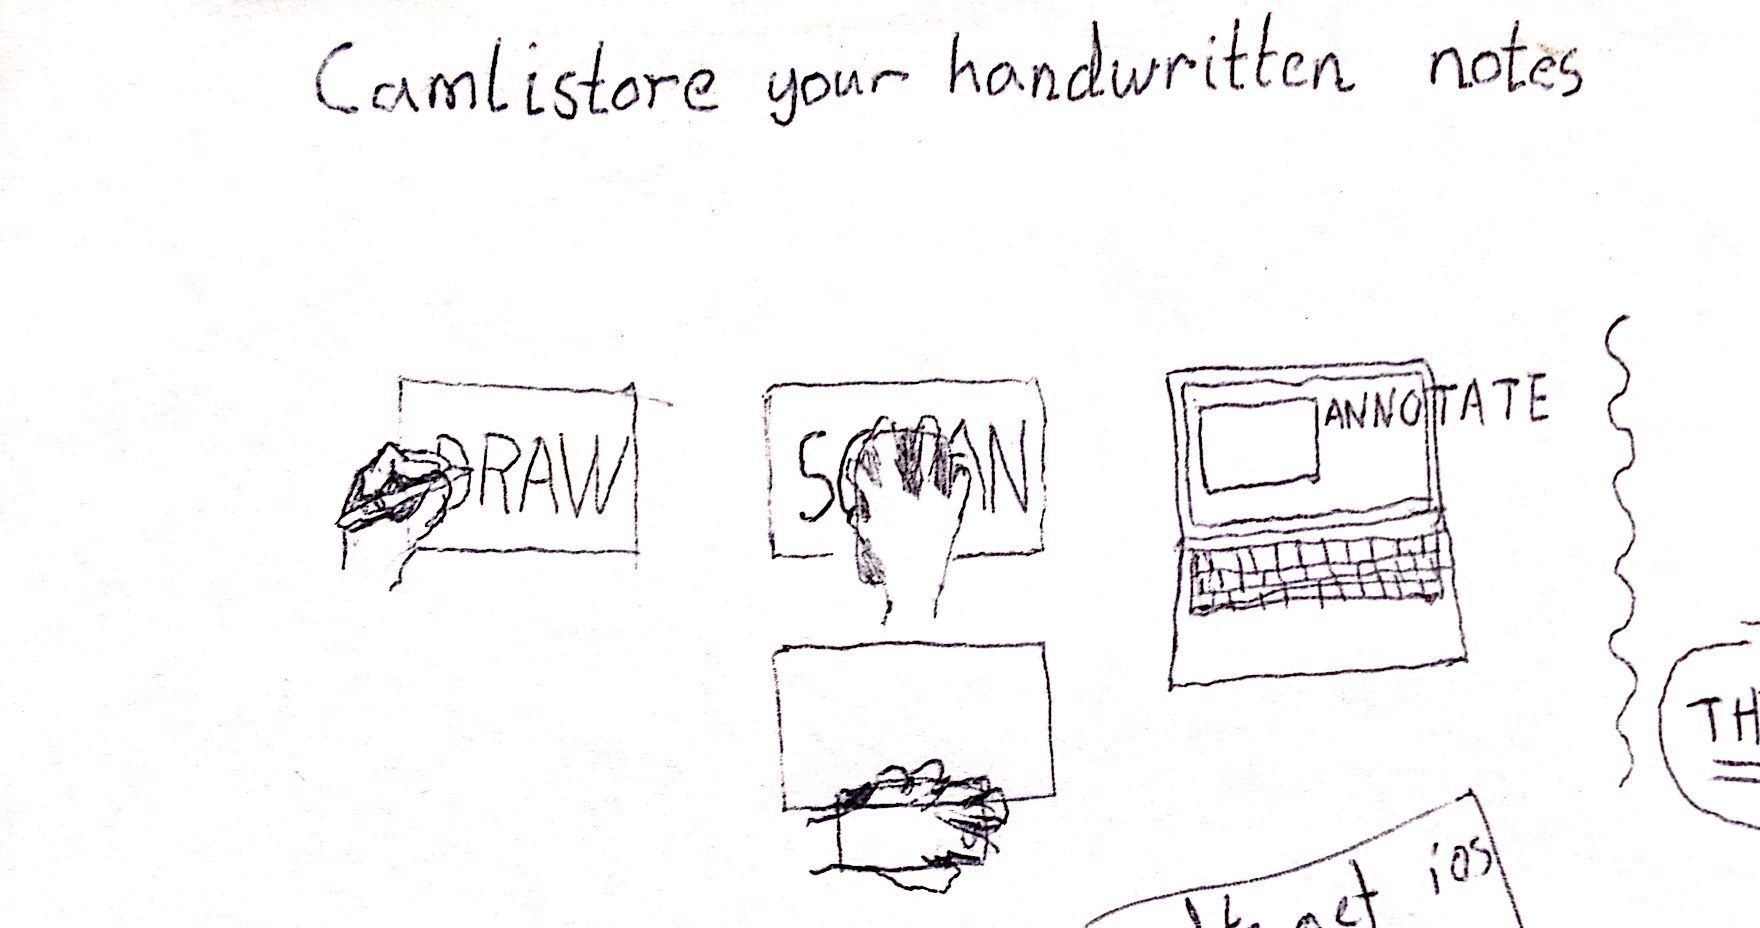 Camlistore your handwritten notes
DRAW
SCAN
ANNOTATE
TH
ios